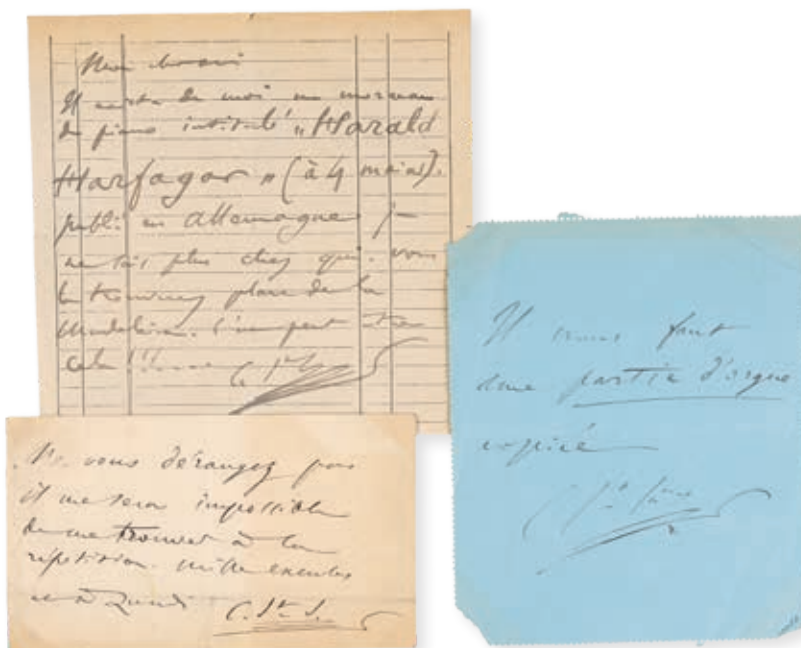 Il existe de moi un morceau
de piano intitulé "Harald
Harfagar" (à 4 mains).
publié en Allemagne je
ne sais plus chez qui. vous
le trouverez place de la
Madeleine. c'est peut être
cela !!!
Ne vous dérangez pas
il me sera impossible
de me trouver à la
répétition. mille excuses
et à Lundi C. St S.
Il vous faut
une partie d'orgue
copiée
C. St Saëns